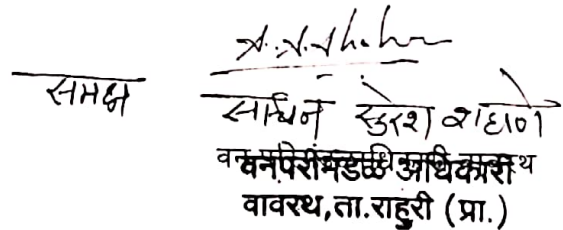 समक्ष
सचिन सुरेश शहाणे
वनपरीमंडळ अधिकारी
वावरथ, ता.राहुरी (प्रा.)